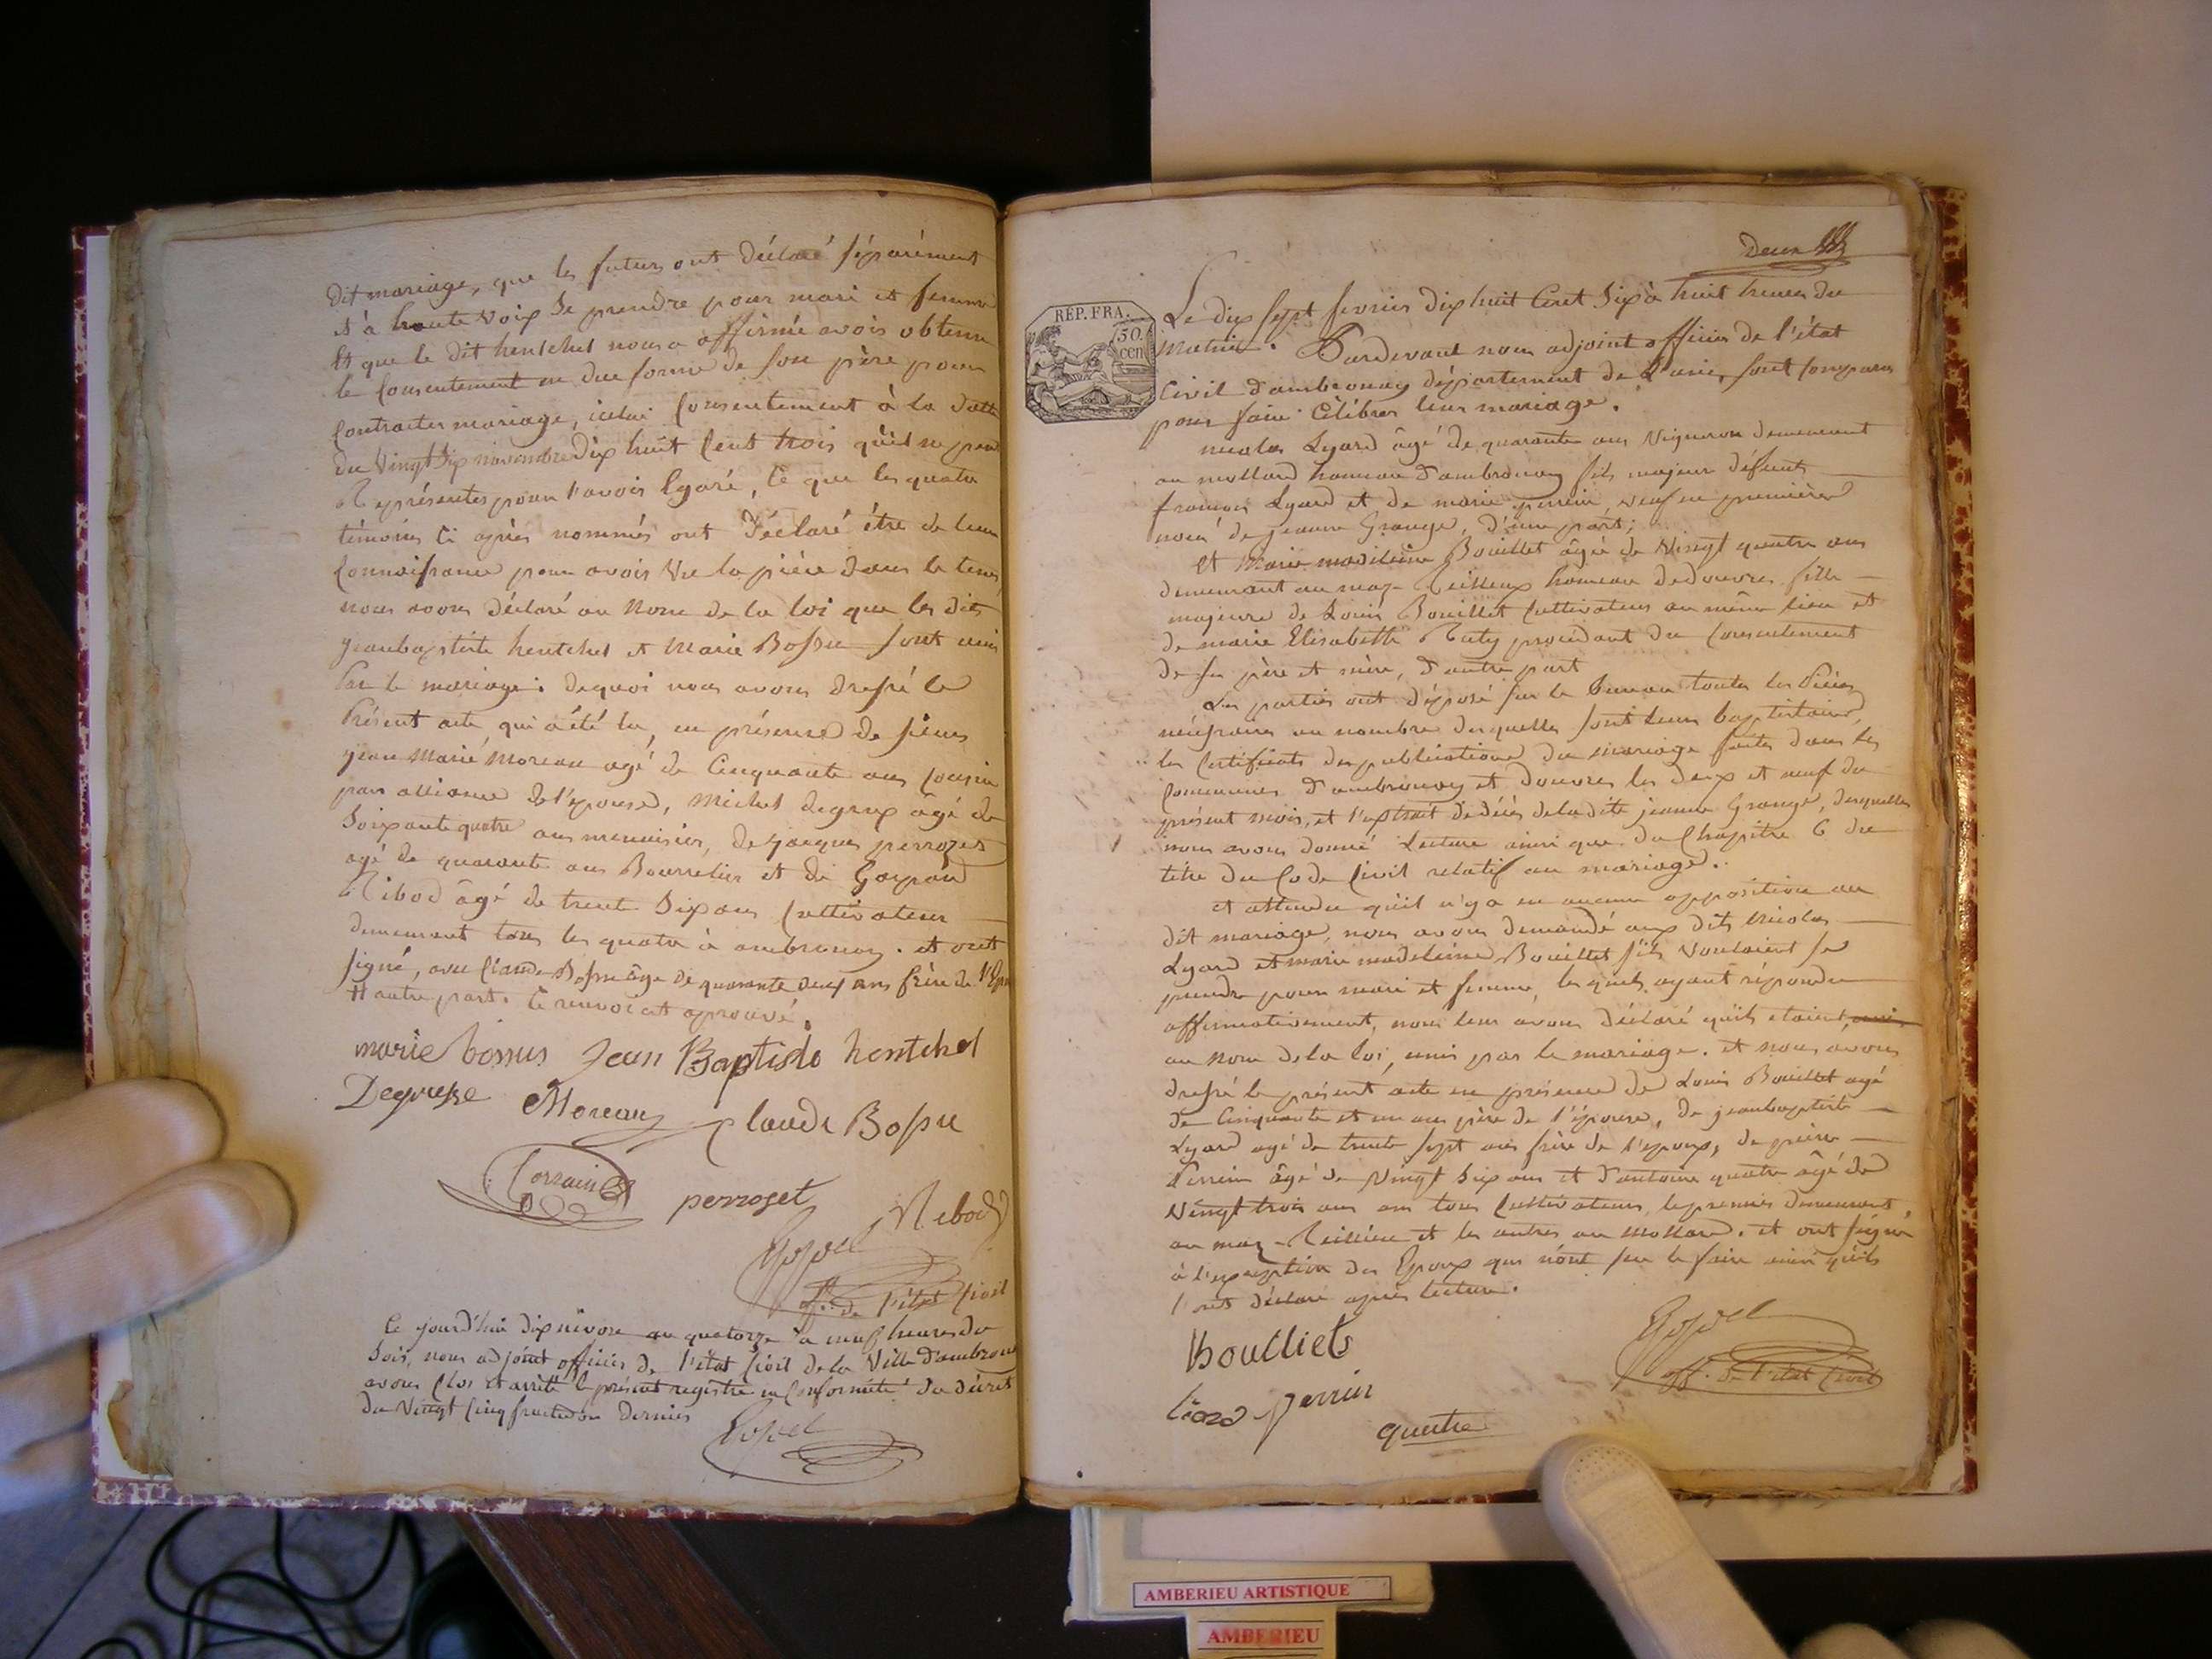 dit mariage, que les futurs ont déclaré séparément
et à haute voix se prendre pour mari et femme
Et que le dit hentchel nous a affirmé avoir obtenu
le Consentement en due forme de son père pour
Contracter mariage, icelui Consentement à la datte
du Vingt Six novembre dix huit Cent trois qu'il ne peut
Représenter pour l'avoir Egaré, Ce que les quatre
témoins Ci après nommés ont déclaré être de leur
Connoissance pour avoir Vu la pièce dans le tems
nous avons déclaré au Nom de la loi que les dits
jeanbaptiste hentchel et Marie Bossu sont unis
Par le mariage. dequoi nous avons dressé le
Présent acte, qui a été lu, en présence de sieurs
jean Marie Moreau agé de Cinquante ans Cousin
par alliance de l'épouse, Michel degrup âgé de
Soixante quatre ans menuisier, de jacques perrozet
agé de quarante ans Bourrelier et de Gaspard
Ribod âgé de trente Six ans Cultivateur
demeurant tous les quatre à ambronay. et ont
signé, avec Claude Bossu âgé de quarante deux ans frère de l'Ep
autre part. Ce renvoi est aprouvé.
marie bossus Jean Baptiste hentchel
Degrusse Moreau Claude Bossu
Lorrain perroset Ribod
off. de l'état Civil
Ce jourd'hui dix nivose an quatorze à neuf heures du
Soir, nous adjoint officier de l'état Civil de la Ville d'ambronay
avons Clos et arrêté le présent registre en Conformité du décret
du Vingt Cinq fructidor dernier
Deux
REP. FRA.
50.
cen
Le dix sept fevrier dix huit Cent Six à huit heures du
matin. Pardevant nous adjoint officier de l'état
Civil d'ambronay département de L'ain, sont Comparus
pour faire Célébrer leur mariage.
nicolas Lyard âgé de quarante ans Vigneron demeurant
au mollard hameau d'ambronay fils majeur défunts
françois Lyard et de marie perrin, veuf en premières
noces de jeanne Grange, d'une part;
Et Marie madeleine Bouillet âgée de Vingt quatre ans
demeurant au maz-Reillieux hameau dedouvres fille
majeure de Louis Bouillet Cultivateur au même lieu et
de marie Elisabeth Ruty procédant du Consentement
de ses père et mère, d'autre part
Les parties ont déposé sur le Bureau toutes les Pièces
nécessaires au nombre desquelles sont leurs baptistaires,
les Certificats des publications du mariage faites dans les
Communes d'ambronay et douvres les deux et neuf du
présent mois, et l'extrait de décès deladite jeanne Grange, desquelles
nous avons donné Lecture ainsi que du Chapitre 6 du
titre du Code Civil relatif au mariage.
et attendu qu'il n'y a eu aucune opposition au
dit mariage, nous avons demandé aux dits nicolas
Lyard et marie madeleine Bouillet s'ils Voulaient se
prendre pour mari et femme, lesquels ayant répondu
affirmativement, nous leur avons déclaré qu'ils etaient, unis
au Nom de la loi, unis par le mariage. et nous avons
dressé le présent acte en présence de Louis Bouillet agé
de Cinquante et un ans père de l'épouse, de jeanbaptiste
Lyard agé de trente sept ans frère de l'epoux, de pierre
Perrin âgé de Vingt Six ans et d'antoine quatre âgé de
Vingt trois ans ans tous Cultivateurs, le premier demeurant
au maz-Reillieu et les autres au mollard. et ont signé
à l'exception des Epoux qui n'ont su le faire ainsi qu'ils
l'ont déclaré après lecture.
Boulliet
liard perrin
quatre
off. de l'état Civil
AMBERIEU ARTISTIQUE
AMBERIEU